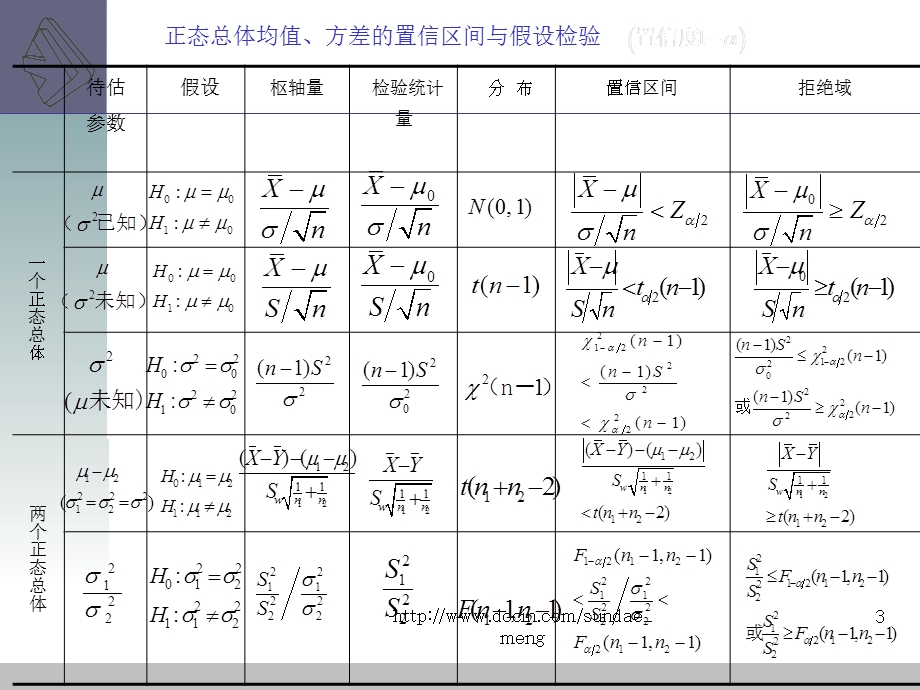 正态总体均值、方差的置信区间与假设检验 (置信度1-α)
待估参数 假设 枢轴量 检验统计量 分 布 置信区间 拒绝域
一个正态总体
μ (σ²已知) H₀:μ=μ₀ H₁:μ≠μ₀ (X̄-μ)/(σ/√n) (X̄-μ₀)/(σ/√n) N(0,1) |X̄-μ|/(σ/√n) < Z_{α/2} |X̄-μ₀|/(σ/√n) ≥ Z_{α/2}
μ (σ²未知) H₀:μ=μ₀ H₁:μ≠μ₀ (X̄-μ)/(S/√n) (X̄-μ₀)/(S/√n) t(n-1) |X̄-μ|/(S/√n) < t_{α/2}(n-1) |X̄-μ₀|/(S/√n) ≥ t_{α/2}(n-1)
σ² (μ未知) H₀:σ²=σ₀² H₁:σ²≠σ₀² (n-1)S²/σ² (n-1)S²/σ₀² χ²(n-1) χ²_{1-α/2}(n-1) < (n-1)S²/σ² < χ²_{α/2}(n-1) (n-1)S²/σ₀² ≤ χ²_{1-α/2}(n-1) 或 (n-1)S²/σ² ≥ χ²_{α/2}(n-1)
两个正态总体
μ₁-μ₂ (σ₁²=σ₂²=σ²) H₀:μ₁=μ₂ H₁:μ₁≠μ₂ ((X̄-Ȳ)-(μ₁-μ₂))/(S_w√(1/n₁+1/n₂)) (X̄-Ȳ)/(S_w√(1/n₁+1/n₂)) t(n₁+n₂-2) |(X̄-Ȳ)-(μ₁-μ₂)|/(S_w√(1/n₁+1/n₂)) < t(n₁+n₂-2) |X̄-Ȳ|/(S_w√(1/n₁+1/n₂)) ≥ t(n₁+n₂-2)
σ₁²/σ₂² H₀:σ₁²=σ₂² H₁:σ₁²≠σ₂² S₁²/S₂² / σ₁²/σ₂² S₁²/S₂² F(n₁-1,n₂-1) F_{1-α/2}(n₁-1,n₂-1) < S₁²/S₂² / σ₁²/σ₂² < F_{α/2}(n₁-1,n₂-1) S₁²/S₂² ≤ F_{1-α/2}(n₁-1,n₂-1) 或 S₁²/S₂² ≥ F_{α/2}(n₁-1,n₂-1)
http://www.docin.com/sundae_
meng
3